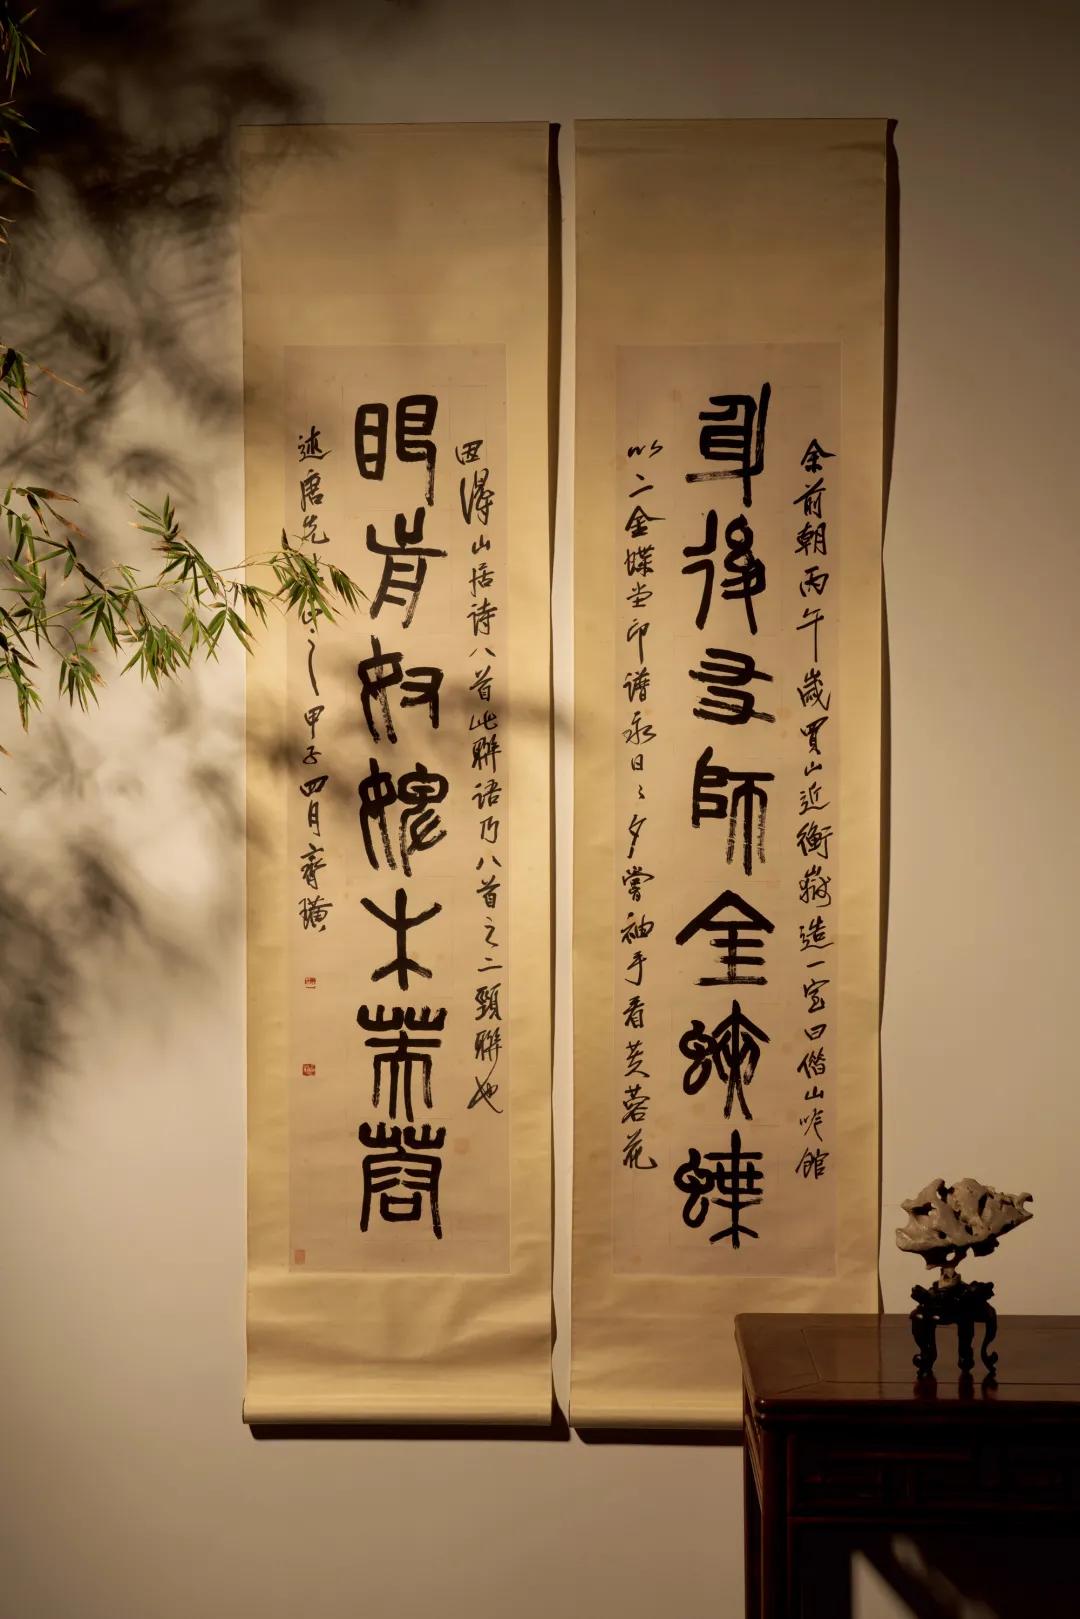 余前朝丙午歲買山近衡嶽造一室曰借山吟館
身後友師金蛺蝶
以二金蝶堂印譜永日ゝ夕嘗袖手看芙蓉花
因得山居詩八首此聯語乃八首之二頸聯也
眼前奴婢木芙蓉
述唐先生正之甲子四月齊璜